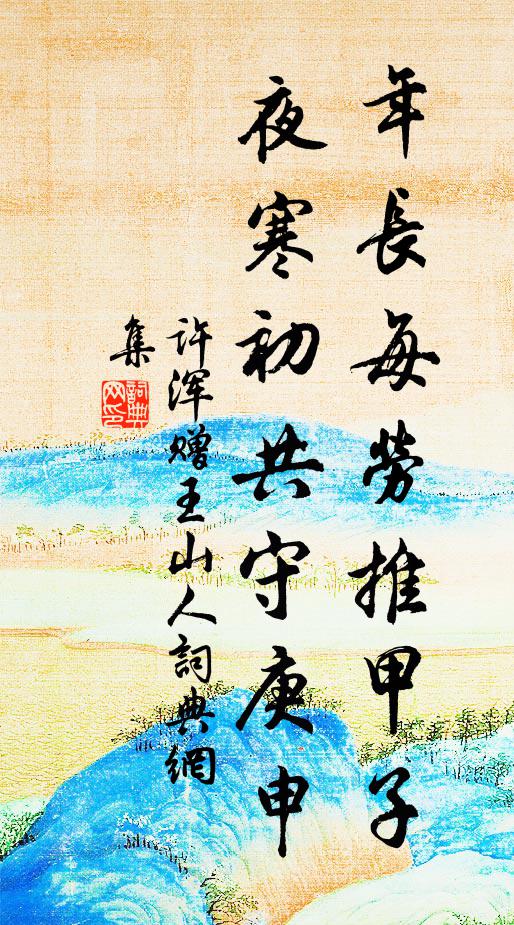 年長每勞推甲子
夜寒初共守庚申
許渾贈王山人詞典網
集
詞典
网印